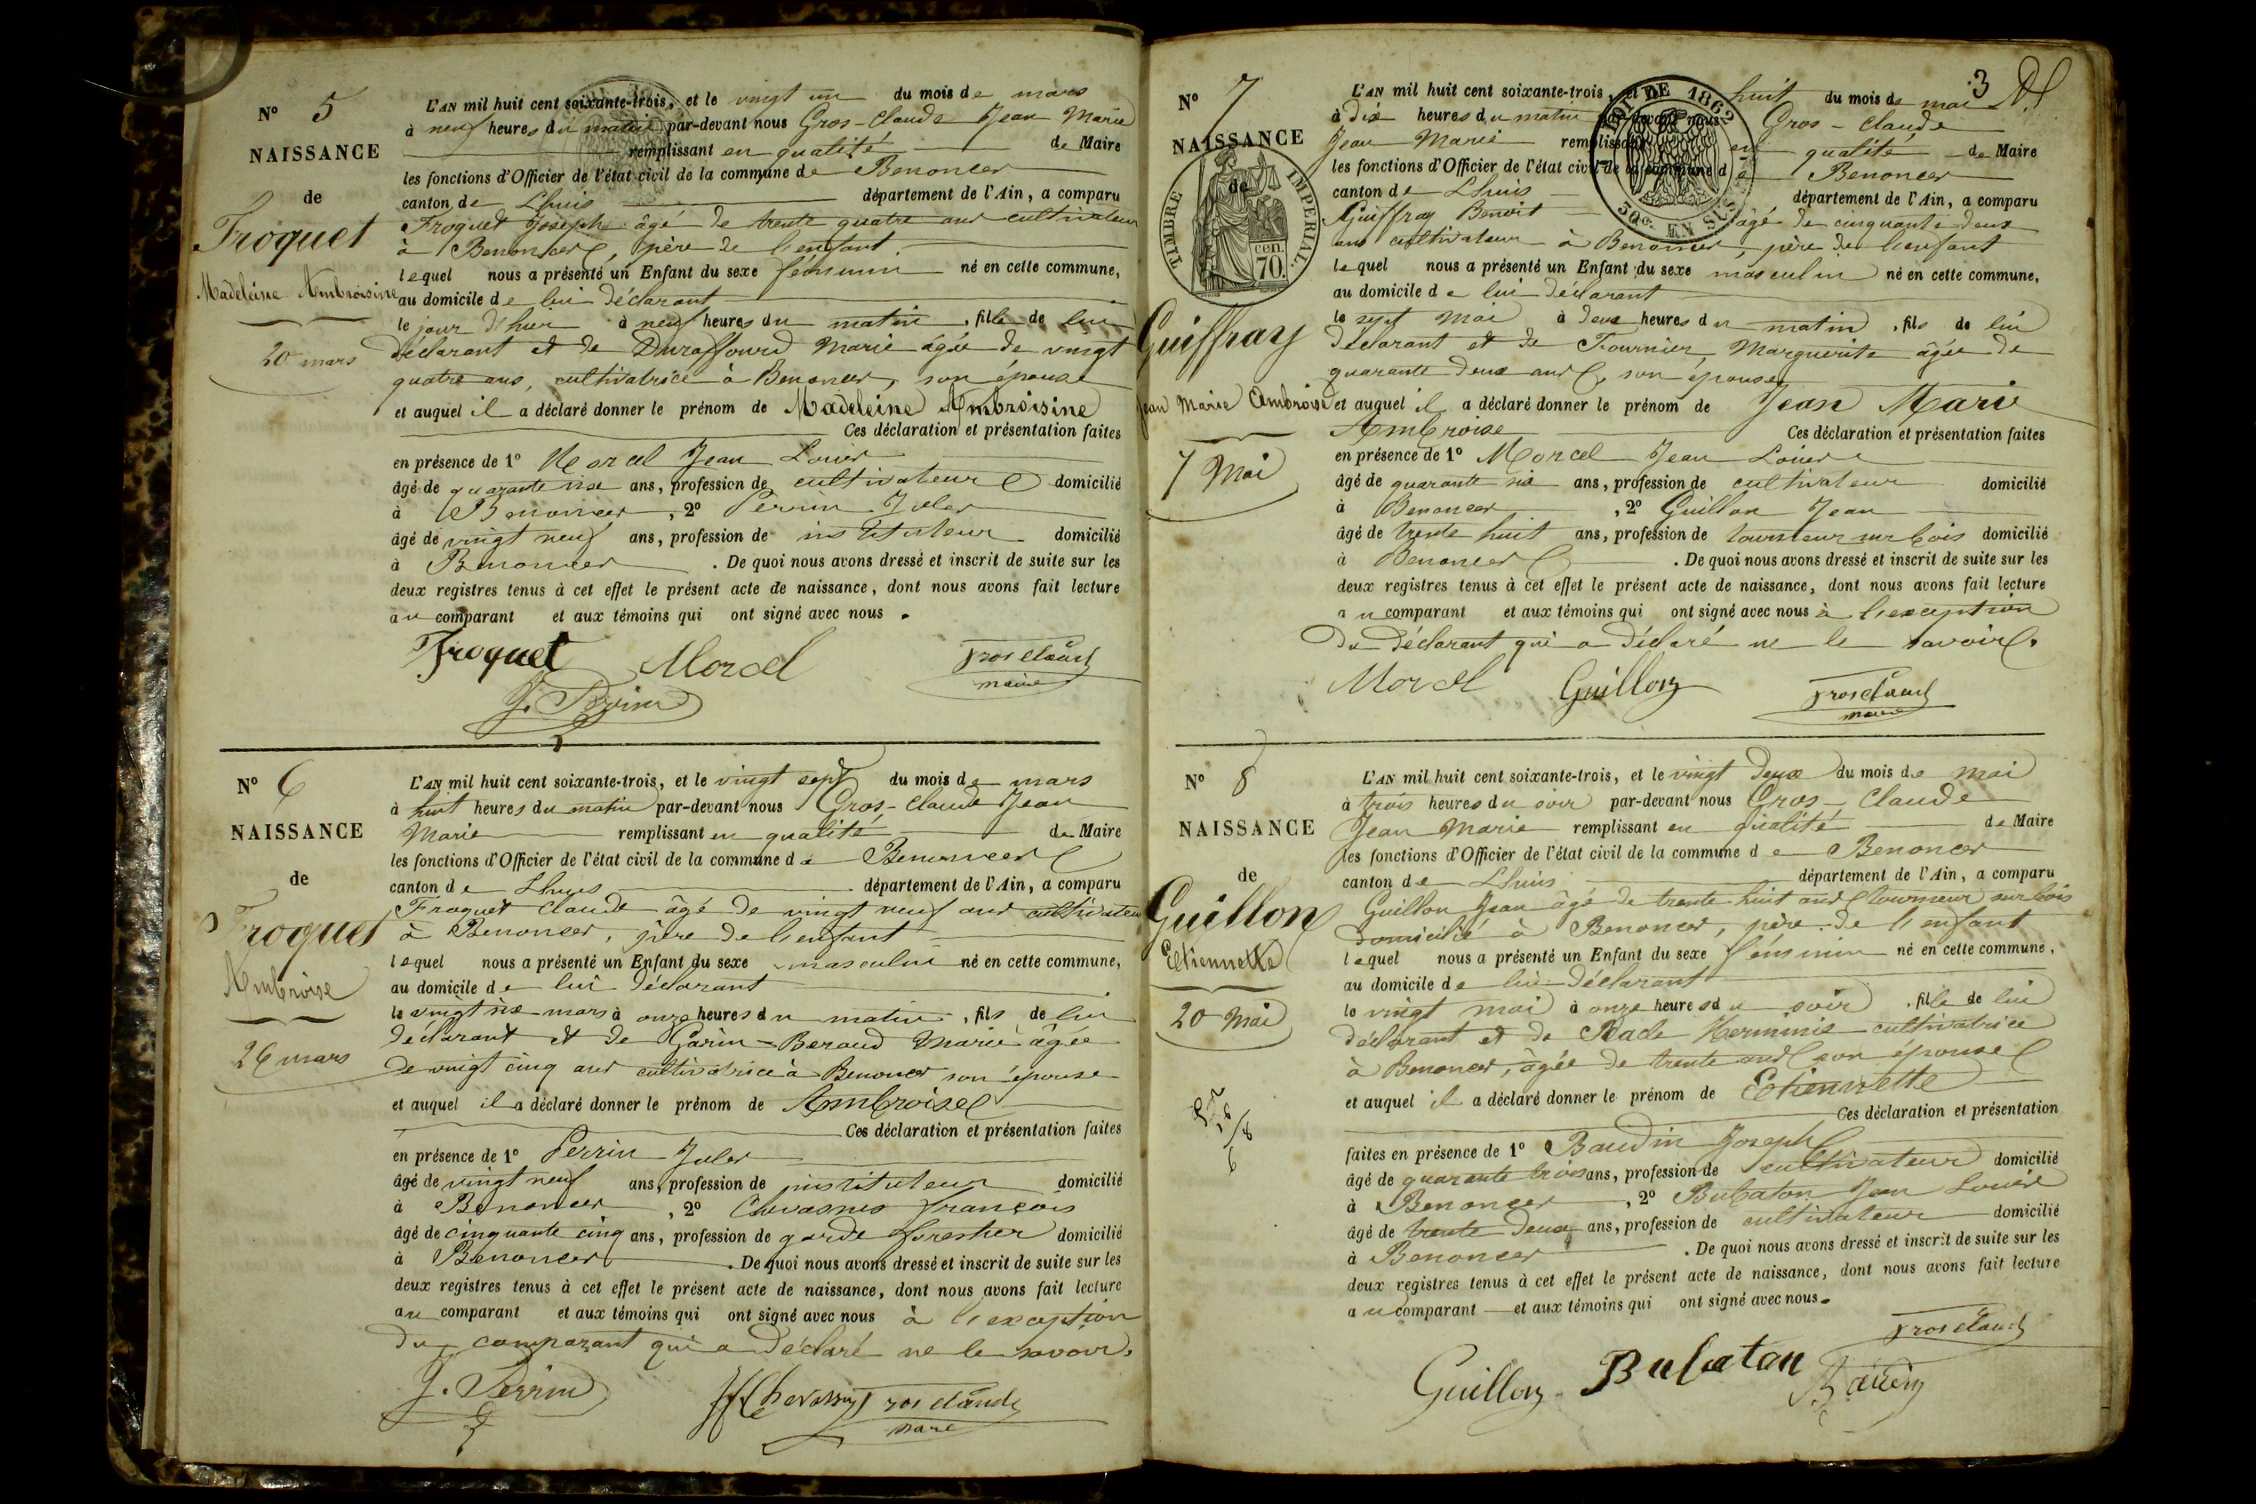 N° 5
NAISSANCE
de
Froquet
Madeleine Ambroisine
20 mars
L'AN mil huit cent soixante-trois, et le vingt un du mois de mars
à neuf heures du matin par-devant nous Gros-Claude Jean Marie
remplissant en qualité de Maire
les fonctions d'Officier de l'état civil de la commune de Benonces
canton de Lhuis département de l'Ain, a comparu
Froquet Joseph âgé de trente quatre ans cultivateur
à Benonces, père de l'enfant
lequel nous a présenté un Enfant du sexe féminin né en cette commune,
au domicile de lui déclarant
le jour d'hier à neuf heures du matin, fille de lui
déclarant et de Duraffourd Marie âgée de vingt
quatre ans, cultivatrice à Benonces, son épouse
et auquel il a déclaré donner le prénom de Madeleine Ambroisine
Ces déclaration et présentation faites
en présence de 1° Morcel Jean Louis
âgé de quarante six ans, profession de cultivateur domicilié
à Benonces, 2° Perrin Jules
âgé de vingt neuf ans, profession de instituteur domicilié
à Benonces. De quoi nous avons dressé et inscrit de suite sur les
deux registres tenus à cet effet le présent acte de naissance, dont nous avons fait lecture
au comparant et aux témoins qui ont signé avec nous.
Froquet Morcel Grosclaude
maire
J. Perrin
N° 6
NAISSANCE
de
Froquet
Ambroise
26 mars
L'AN mil huit cent soixante-trois, et le vingt sept du mois de mars
à huit heures du matin par-devant nous Gros-Claude Jean
Marie remplissant en qualité de Maire
les fonctions d'Officier de l'état civil de la commune de Benonces
canton de Lhuis département de l'Ain, a comparu
Froquet Claude âgé de vingt neuf ans cultivateur
à Benonces, père de l'enfant
lequel nous a présenté un Enfant du sexe masculin né en cette commune,
au domicile de lui déclarant
le vingt six mars à onze heures du matin, fils de lui
déclarant et de Garin-Beraud Marie âgée
de vingt cinq ans cultivatrice à Benonces son épouse
et auquel il a déclaré donner le prénom de Ambroise
Ces déclaration et présentation faites
en présence de 1° Perrin Jules
âgé de vingt neuf ans, profession de instituteur domicilié
à Benonces, 2° François
âgé de cinquante cinq ans, profession de garde forestier domicilié
à Benonces. De quoi nous avons dressé et inscrit de suite sur les
deux registres tenus à cet effet le présent acte de naissance, dont nous avons fait lecture
au comparant et aux témoins qui ont signé avec nous à l'exception
du comparant qui a déclaré ne le savoir.
J. Perrin Grosclaude
maire
3
N° 7
NAISSANCE
de
TIMBRE IMPERIAL
cen. 70.
Guiffray
Jean Marie Ambroise
7 Mai
LOI DE 1862
30c. EN SUS
L'AN mil huit cent soixante-trois, huit du mois de mai
à dix heures du matin par-devant nous Gros-Claude
Jean Marie remplissant en qualité de Maire
les fonctions d'Officier de l'état civil de la commune de Benonces
canton de Lhuis département de l'Ain, a comparu
Guiffray Benoit âgé de cinquante deux
ans cultivateur à Benonces, père de l'enfant
lequel nous a présenté un Enfant du sexe masculin né en cette commune,
au domicile de lui déclarant
le sept mai à deux heures du matin, fils de lui
déclarant et de Fournier Marguerite âgée de
quarante deux ans, son épouse
et auquel il a déclaré donner le prénom de Jean Marie
Ambroise Ces déclaration et présentation faites
en présence de 1° Morcel Jean Louis
âgé de quarante six ans, profession de cultivateur domicilié
à Benonces, 2° Guillon Jean
âgé de trente huit ans, profession de tourneur sur bois domicilié
à Benonces. De quoi nous avons dressé et inscrit de suite sur les
deux registres tenus à cet effet le présent acte de naissance, dont nous avons fait lecture
au comparant et aux témoins qui ont signé avec nous à l'exception
du déclarant qui a déclaré ne le savoir.
Morcel Guillon Grosclaude
maire
N° 8
NAISSANCE
de
Guillon
Etiennette
20 Mai
L'AN mil huit cent soixante-trois, et le vingt deux du mois de mai
à trois heures du soir par-devant nous Gros-Claude
Jean Marie remplissant en qualité de Maire
les fonctions d'Officier de l'état civil de la commune de Benonces
canton de Lhuis département de l'Ain, a comparu
Guillon Jean âgé de trente huit ans tourneur sur bois
domicilié à Benonces, père de l'enfant
lequel nous a présenté un Enfant du sexe féminin né en cette commune,
au domicile de lui déclarant
le vingt mai à onze heures du soir, fille de lui
déclarant et de Herminie cultivatrice
à Benonces, âgée de trente ans son épouse
et auquel il a déclaré donner le prénom de Etiennette
Ces déclaration et présentation
faites en présence de 1° Baudin Joseph
âgé de quarante trois ans, profession de cultivateur domicilié
à Benonces, 2° Bubaton Jean Louis
âgé de trente deux ans, profession de cultivateur domicilié
à Benonces. De quoi nous avons dressé et inscrit de suite sur les
deux registres tenus à cet effet le présent acte de naissance, dont nous avons fait lecture
au comparant et aux témoins qui ont signé avec nous.
Grosclaude
Guillon Bubaton Baudin